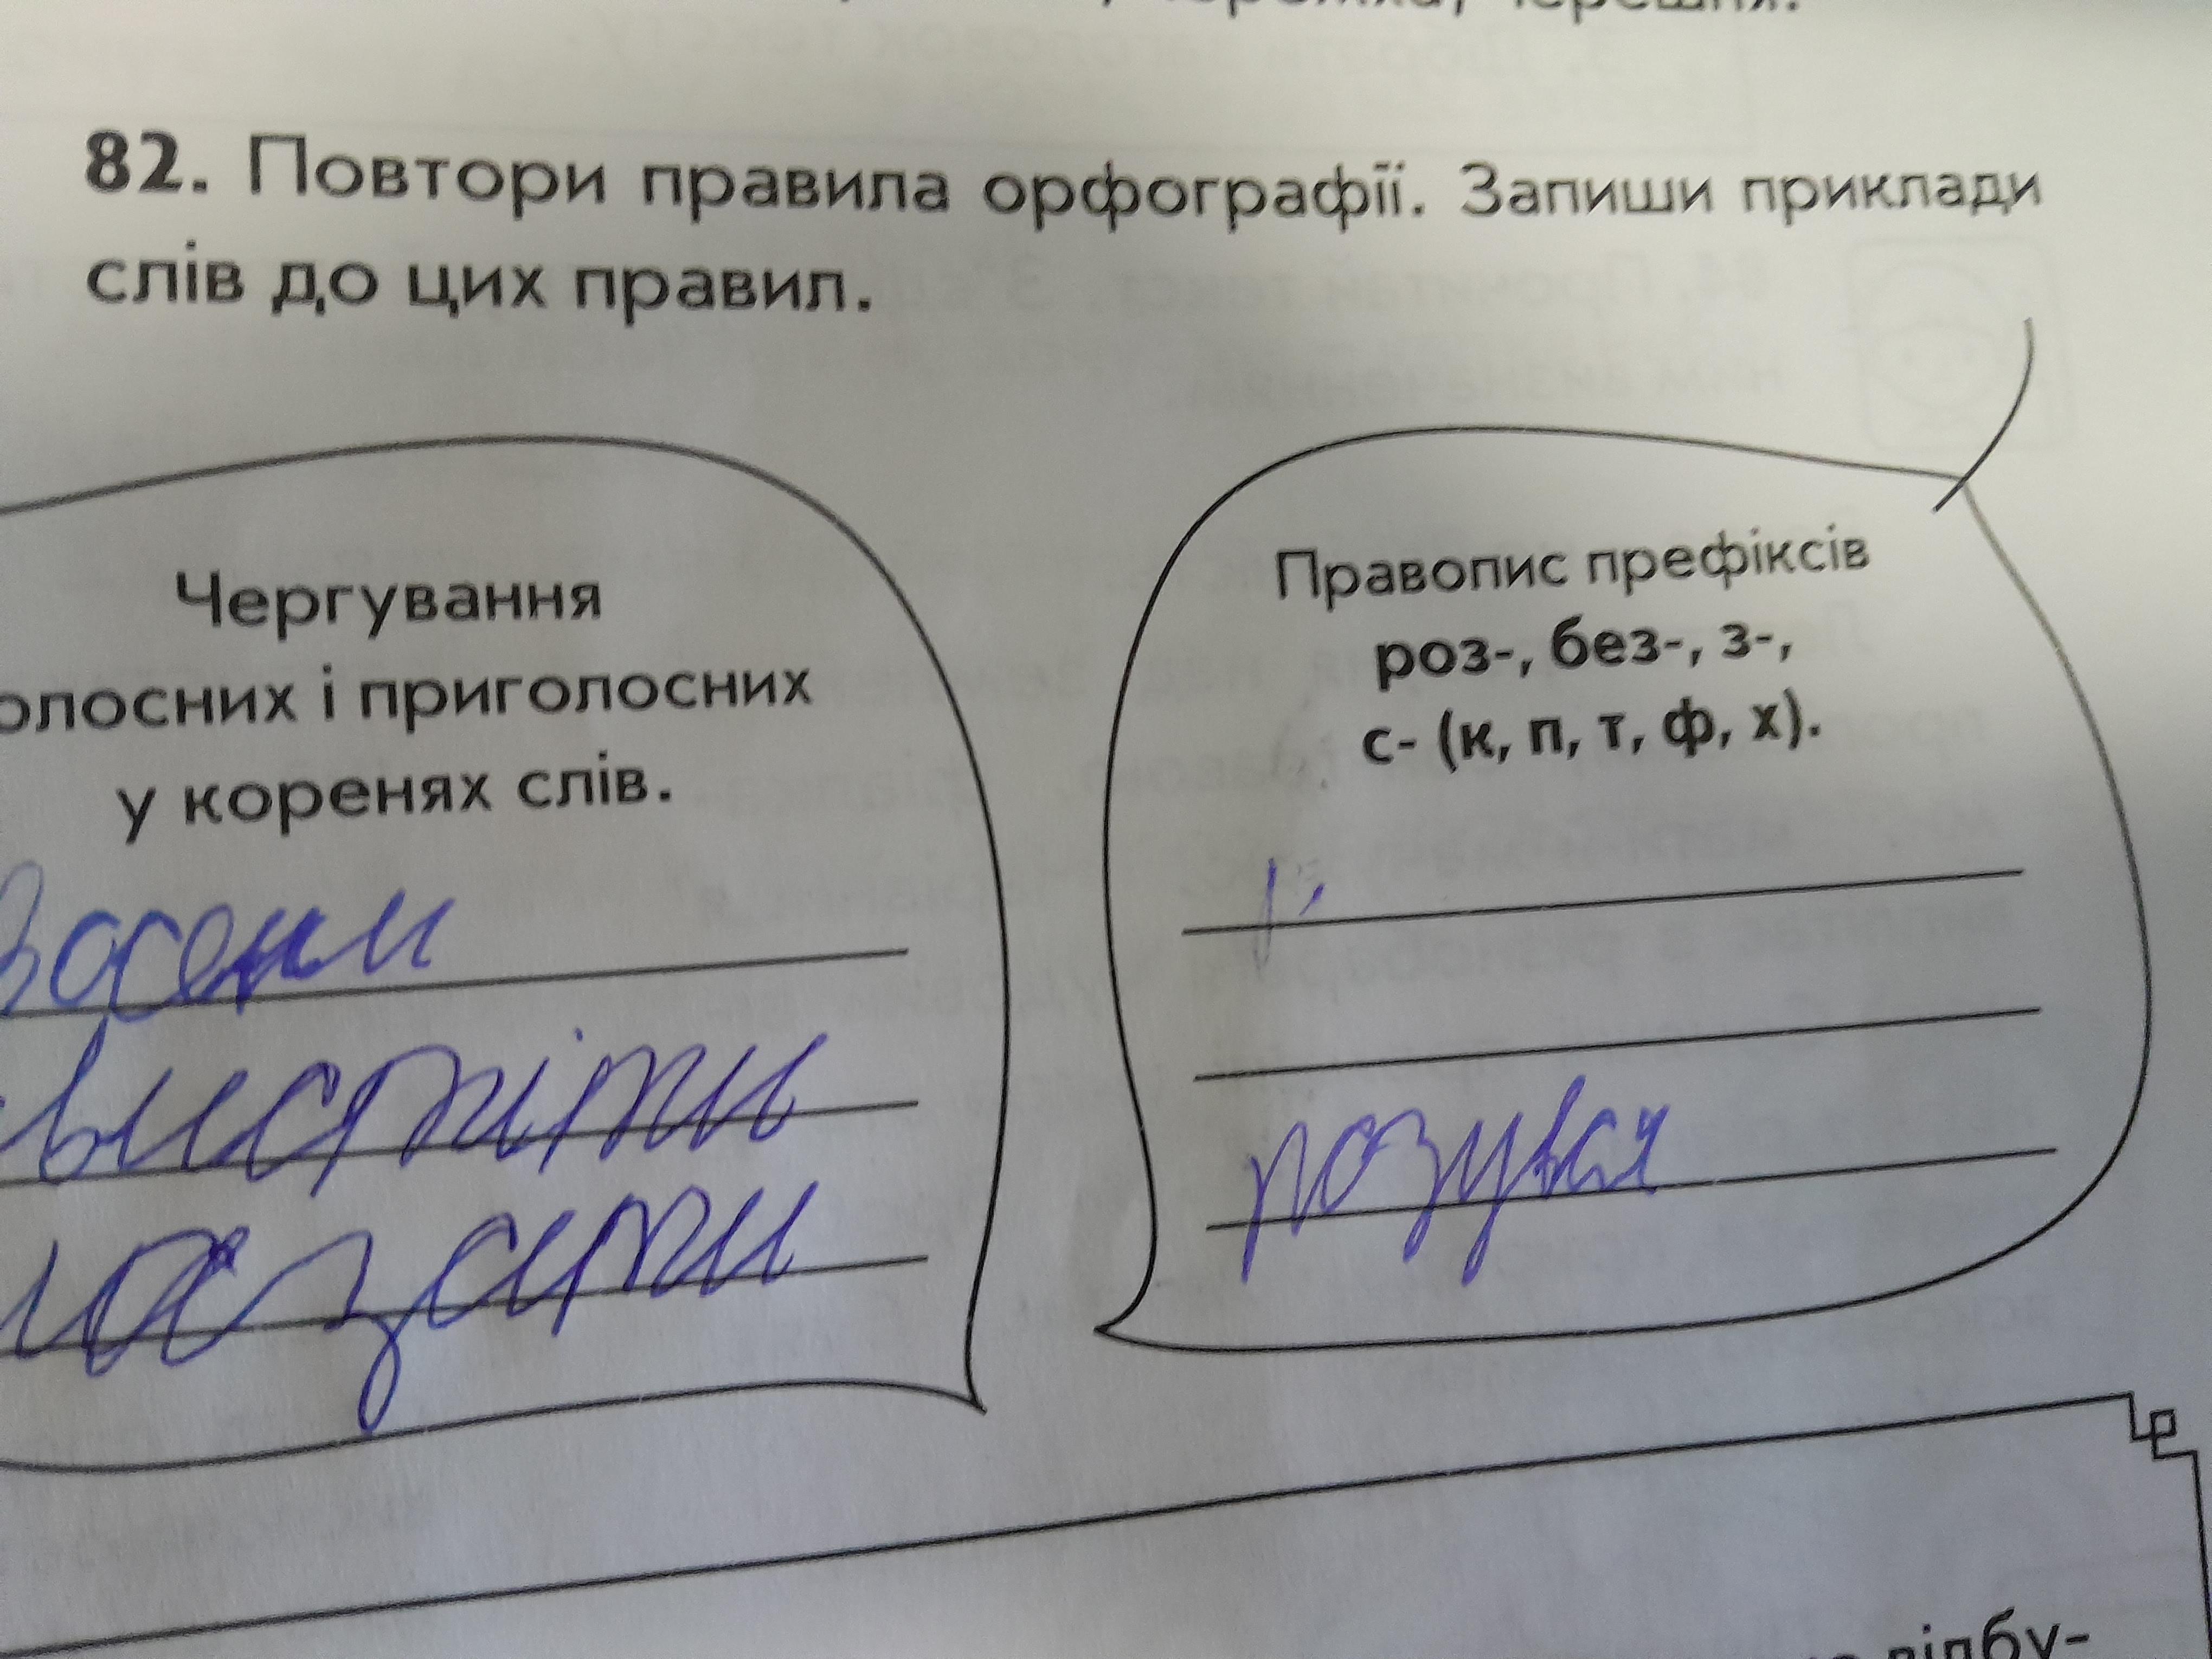 черешня.
82. Повтори правила орфографії. Запиши приклади
слів до цих правил.
Чергування
олосних і приголосних
у коренях слів.
Восени
Правопис префіксів
роз-, без-, з-,
с- (к, п, т, ф, х).
відбу-